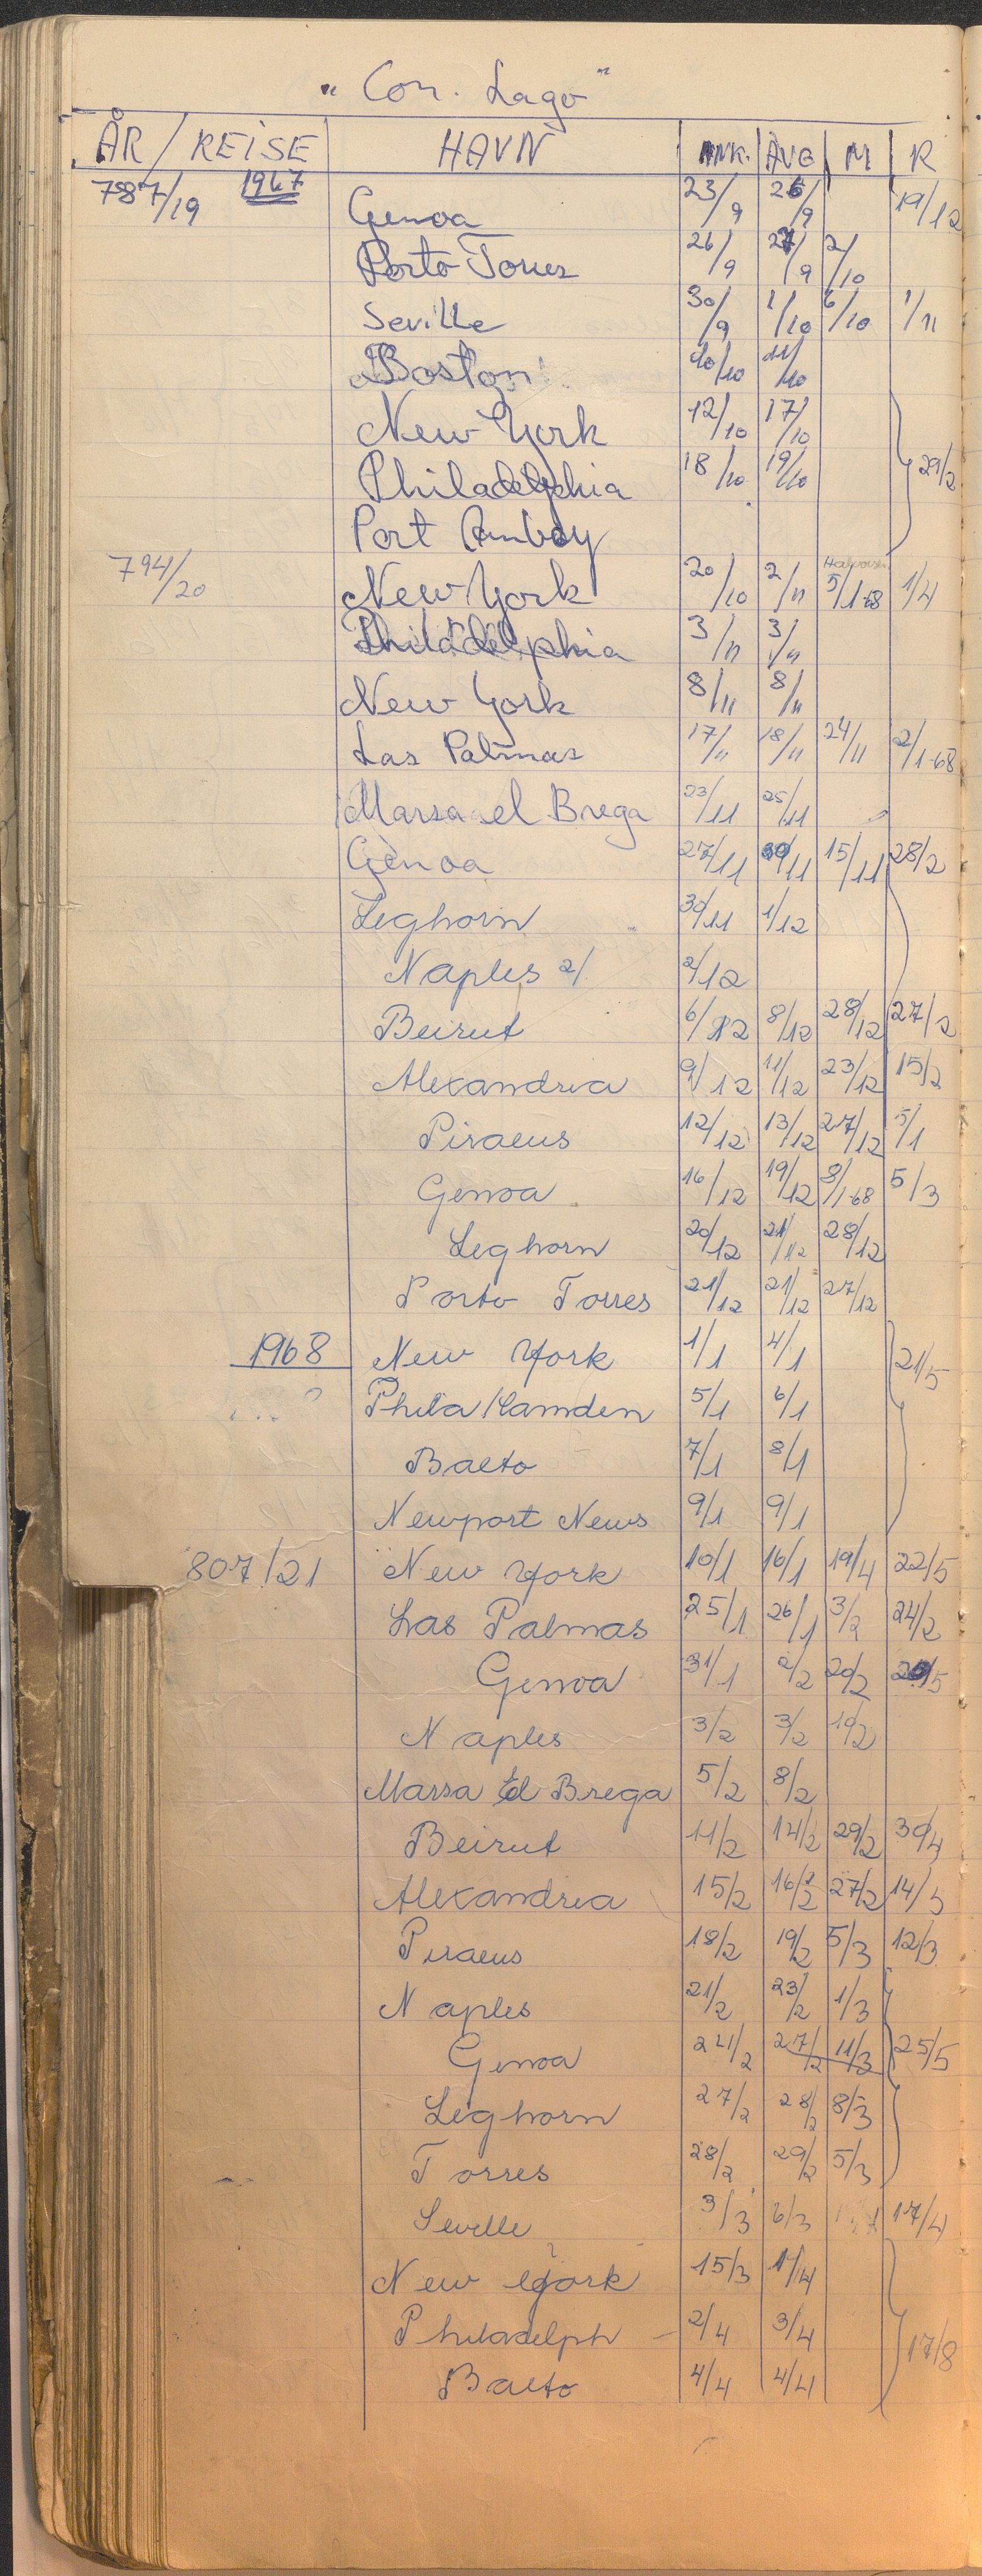 "Con. Lago"
ÅR / REISE HAVN ANK. AVG M R
787/19 1967 Genoa 23/9 26/9 19/12
Porto Torres 26/9 27/9 2/10
Seville 30/9 1/10 6/10 1/11
Boston 10/10 11/10
New York 12/10 17/10
Philadelphia 18/10 19/10 29/2
Port Amboy
794/20 New York 20/10 2/11 5/1-68 1/4
Philadelphia 3/11 3/11
New York 8/11 8/11
Las Palmas 17/11 18/11 24/11 2/1-68
Marsa el Brega 23/11 25/11
Genoa 27/11 30/11 15/11 28/2
Leghorn 30/11 1/12
Naples 2/. 2/12
Beirut 6/12 8/12 28/12 27/2
Alexandria 9/12 11/12 23/12 15/2
Piraeus 12/12 13/12 27/12 5/1
Genoa 16/12 19/12 8/1-68 5/3
Leghorn 20/12 21/12 28/12
Porto Torres 21/12 21/12 27/12
1968 New York 1/1 4/1 21/5
Phila/Camden 5/1 6/1
Balto 7/1 8/1
Newport News 9/1 9/1
807/21 New York 10/1 16/1 19/4 22/5
Las Palmas 25/1 26/1 3/2 24/2
Genoa 31/1 2/2 20/2 20/5
Naples 3/2 3/2 19/2
Marsa El Brega 5/2 8/2
Beirut 11/2 14/2 29/2 30/4
Alexandria 15/2 16/2 27/2 14/3
Piraeus 18/2 19/2 5/3 12/3
Naples 21/2 23/2 1/3
Genoa 24/2 27/2 11/3 25/5
Leghorn 27/2 28/2 8/3
Torres 28/2 29/2 5/3
Seville 3/3 6/3 17/4
New York 15/3 1/4
Philadelph 2/4 3/4 17/8
Balto 4/4 4/4